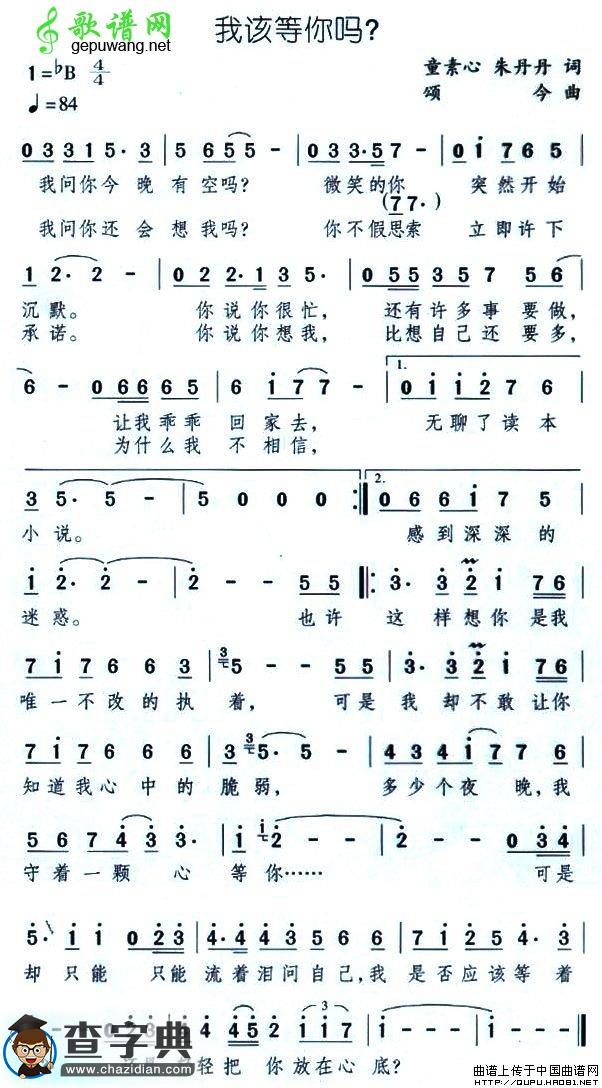 歌谱网
gepuwang.net
我该等你吗?
1=♭B 4/4
♩=84
童素心 朱丹丹 词
颂 今 曲
0 3 3 1 5· 3 | 5 6 5 5 - | 0 3 3·5 7 - | 0 i 7 6 5 |
我问你今 晚 有 空吗? 微笑的你 突然开始
(7 7·)
我问你还 会 想 我吗? 你不假思索 立即许下
1 2· 2 - | 0 2 2·1 3 5· | 0 5 5 3 5 7 5 6 |
沉默。 你说你很忙, 还有许多事 要做,
承诺。 你说你想我, 比想自己还 要多,
6 - 0 6 6 6 5 | 6 i 7 7 - | 1. 0 i i 2 7 6 |
让我乖乖 回家去, 无聊了读本
为什么我 不相信,
3 5· 5 - | 5 0 0 0 :| 2. 0 6 6 i 7 5 |
小说。 感到深深的
i 2· 2 - | 2 - - 5 5 |: 3· 3 2 i 7 6 |
迷惑。 也许 这样想你 是我
7 i 7 6 6 3 | 3 5 - - 5 | 3· 3 2 i 7 6 |
唯一不改的执 着, 可是 我 却不敢让你
7 i 7 6 6 6 | 3 3 5· 5 - | 4 3 4 i 7 7 6 |
知道我心 中的 脆弱, 多少个夜 晚,我
5 6 7 4 3 3· | i i 2 - - | 2 - - 0 3 4 |
守着一颗 心 等你…… 可是
5· i i 0 2 3 | 4·4 3 4 5 6 6 | 7 1 2 3 2 i 7 |
却 只能 只能 流着泪问自己,我 是否应该等着
轻把 你 放在心 底?
查字典
www.chazidian.com
曲谱上传于中国曲谱网
HTTP://QUPU.HAO81.NET